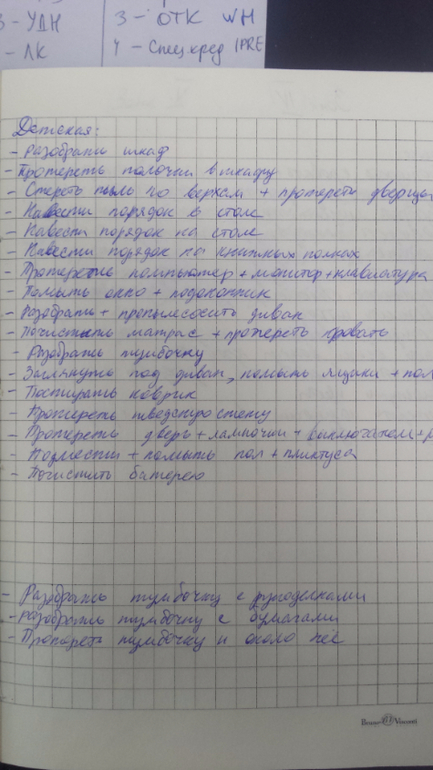 3 - УДН
3 - ОТК WH
- ЛК
4 - Спецкред IPRE
Детская:
- Разобрать шкаф
- Протереть полочки в шкафу
- Стереть пыль по верхам + протереть дверцы
- Навести порядок в столе
- Навести порядок на столе
- Навести порядок на книжных полках
- Протереть компьютер + монитор + клавиатура
- Помыть окно + подоконник
- Разобрать + пропылесосить диван
- Почистить матрас + протереть кровать
- Разобрать тумбочку
- Заглянуть под диван, помыть ящики + пол
- Постирать коврик
- Протереть шведскую стенку
- Протереть дверь + лампочки + выключатели +
- Подмести + помыть пол + плинтуса
- Почистить батарею
- Разобрать тумбочку с рукоделками
- Разобрать тумбочку с бумагами
- Протереть тумбочку и около неё
Bruno Visconti